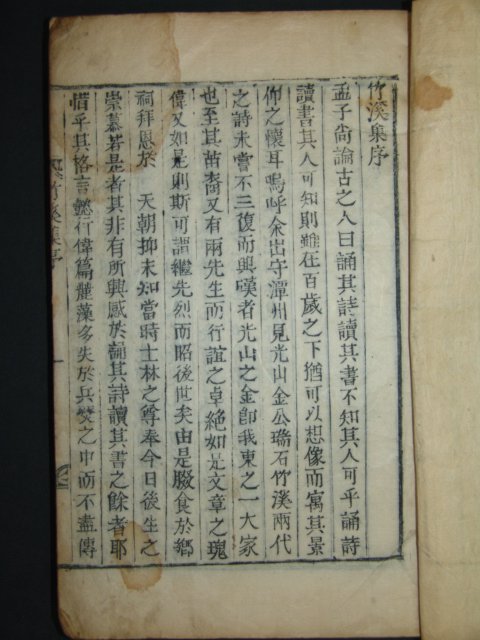 竹溪集序
孟子尙論古之人曰誦其詩讀其書不知其人可乎誦詩
讀書其人可知則雖在百歲之下猶可以想像而寓其景
仰之懷耳嗚呼余出守潭州見光山金公瑞石竹溪兩代
之詩未嘗不三復而興嘆者光山之金卽我東之一大家
也至其苗裔又有兩先生而行誼之卓絶如是文章之瑰
偉又如是則斯可謂繼先烈而昭後世矣由是腏食於鄕
祠拜恩於 天朝抑未知當時士林之尊奉今日後生之
崇慕若是者其非有所興感於誦其詩讀其書之餘者耶
惜乎其格言懿行偉篇麗藻多失於兵燹之中而不盡傳
竹溪集序